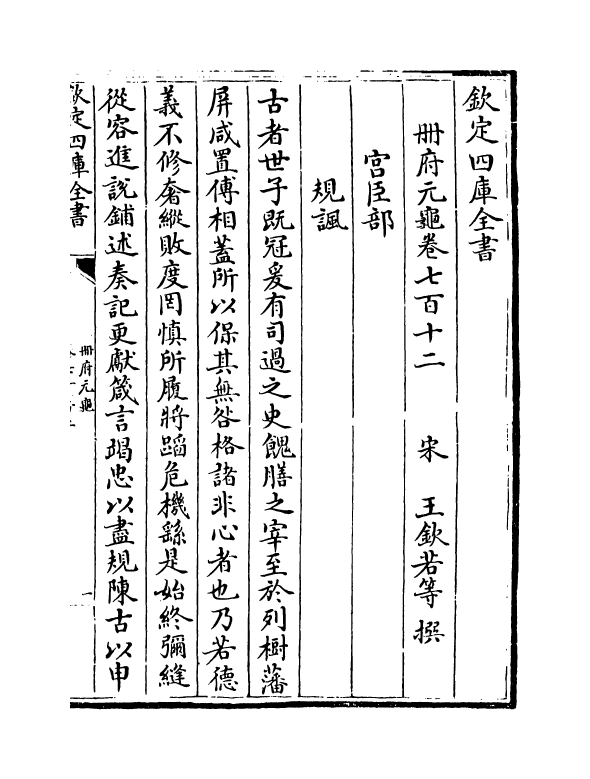 欽定四庫全書
冊府元龜卷七百十二　宋　王欽若等　撰
宮臣部
規諷
古者世子既冠爰有司過之史餽膳之宰至於列樹藩
屏咸置傅相蓋所以保其無咎格諸非心者也乃若德
義不修奢縱敗度罔慎所履將蹈危機繇是始終彌縫
從容進說鋪述奏記更獻箴言竭忠以盡規陳古以申
欽定四庫全書
冊府元龜
一